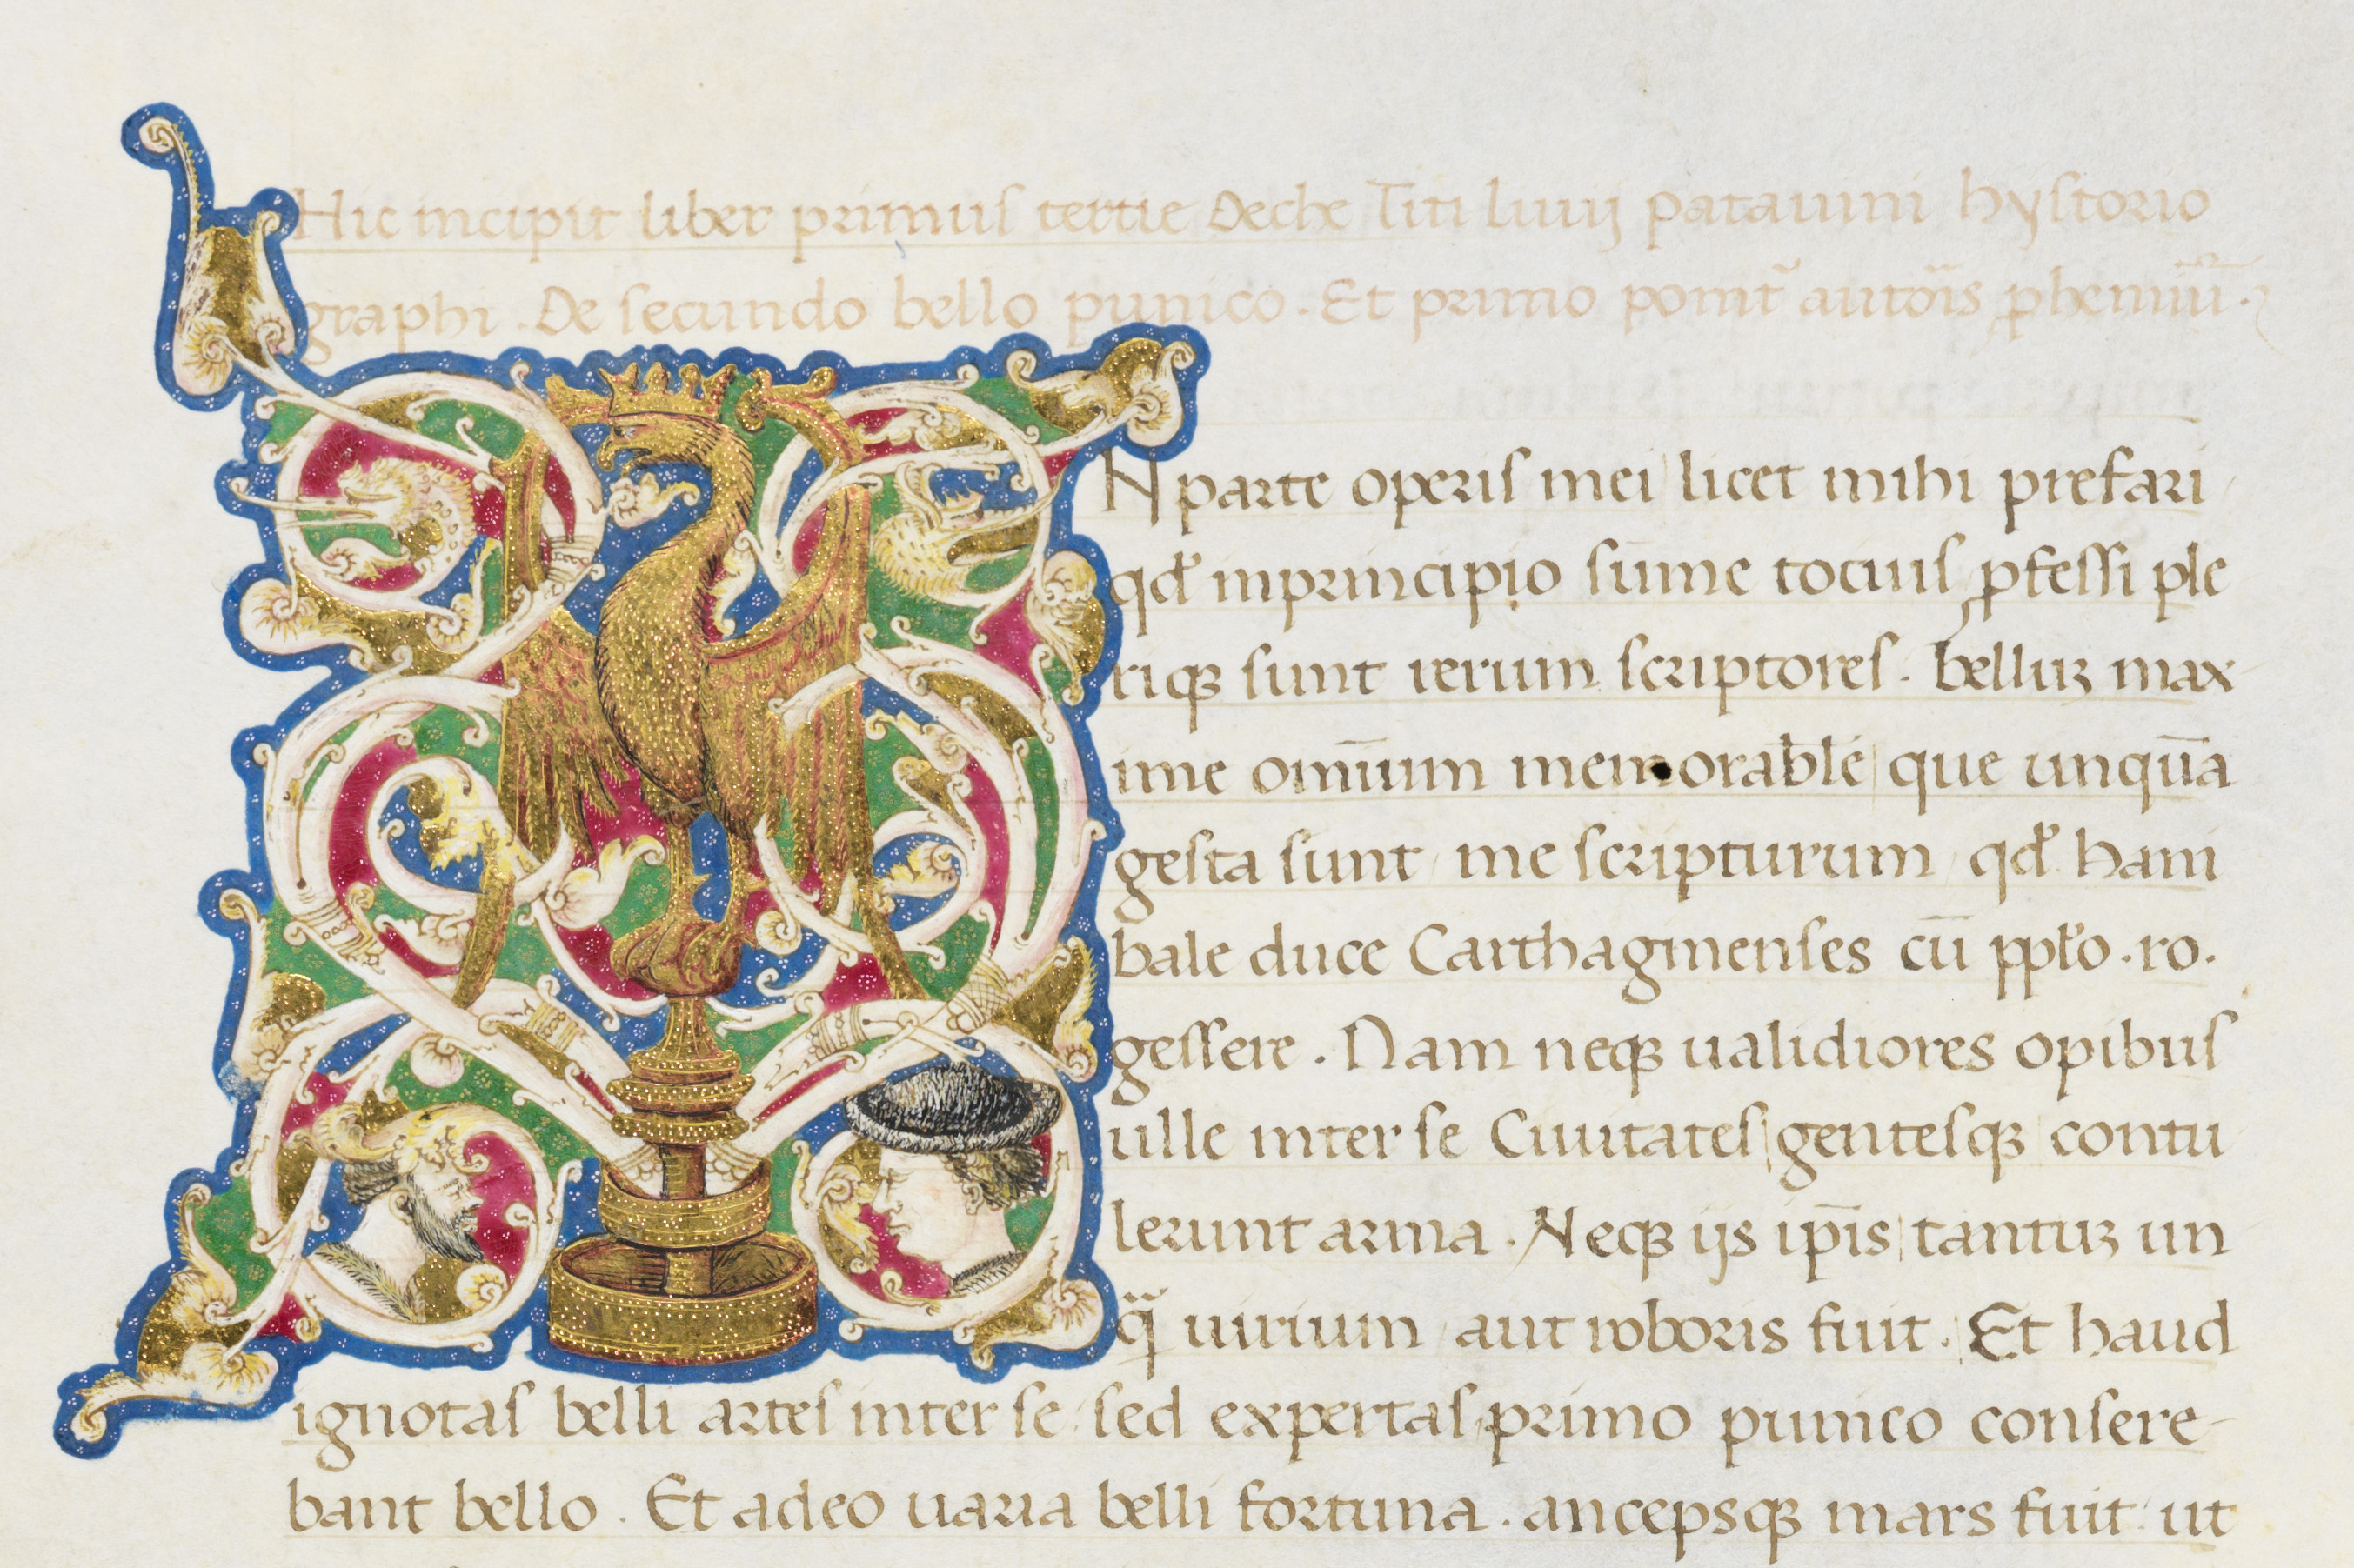 Hic incipit liber primuſ tertie Deche Titi liuij patauini hyſtorio
graphi . De ſecundo bello punico . Et primo ponit᷑ autōis ꝓhemiū .
N parte operiſ mei licet mihi prefari
qđ inprincipio ſūme tociuſ ꝓfeſſi ple
riqꝫ ſunt rerum ſcriptoreſ . belluꝫ max
ime omīum memorable que unquā
geſta ſunt me ſcripturum qđ hani
bale duce Carthaginenſes cū ppło . ro .
geſſere . Nam neqꝫ ualidiores opibuſ
ulle inter ſe Ciuitateſ genteſqꝫ contu
lerunt arma . Neqꝫ ijs ip̄is tantuꝫ un
qᷓ uirium aut roboris fuit . Et haud
ignotaſ belli arteſ inter ſe ſed expertaſ primo punico conſere-
bant bello . Et adeo uaria belli fortuna . ancepsqꝫ mars fuit ut